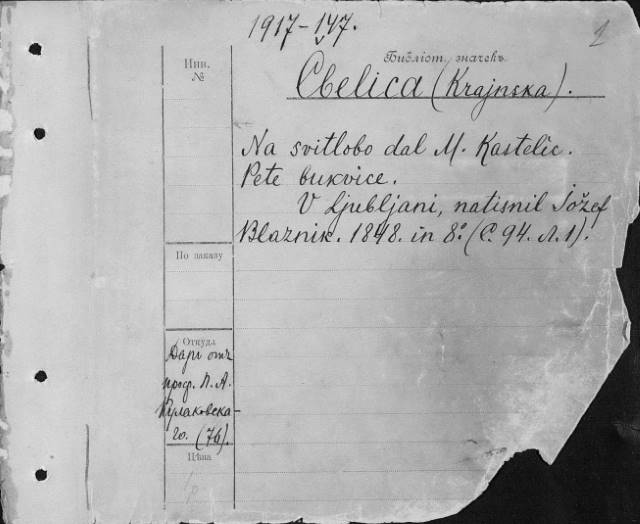 1917-147.
2
Библіот. значекъ
Инв.
№
Cbelica (Krajnska).
Na svitlobo dal M. Kastelic.
Pete bukvice.
V Ljubljani, natisnil Jožef
Blaznik. 1848. in 8º. (С. 94. л. 1).
По заказу
Откуда
Даръ отъ
проф. П. А.
Кулаковска-
го. (76).
Цѣна